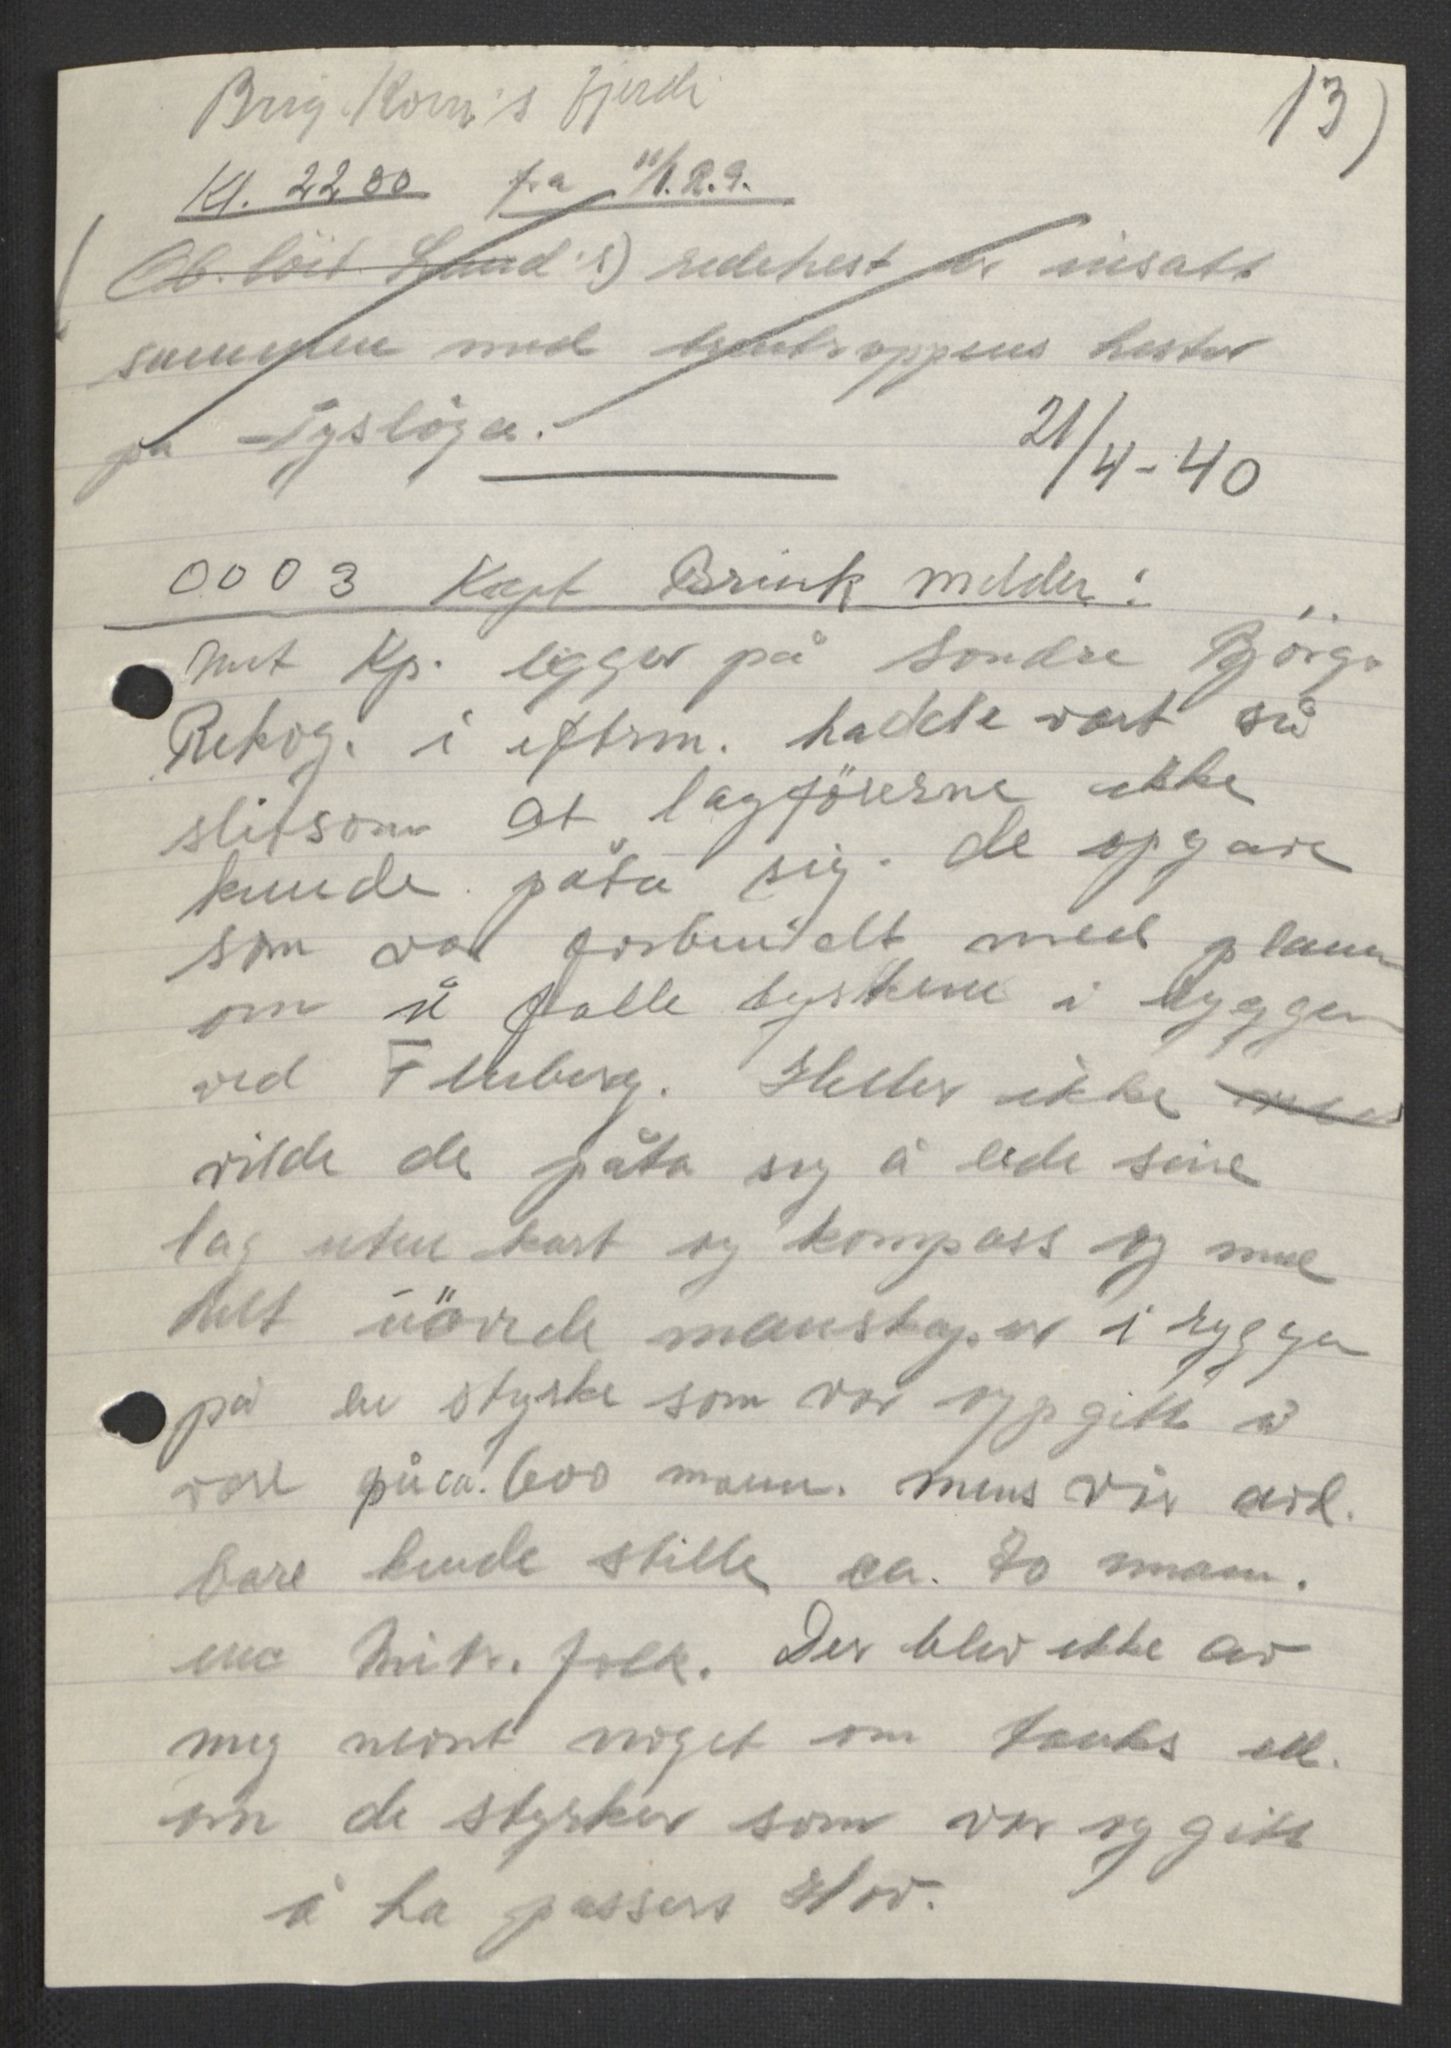 13)
Brig. Kom's fjerde
Kl. 2200 fra II/I.R.9.
Ob. löit. Lund's) ridehest er insatt
sammen med trentroppens hester
på Tyslöga.
21/4-40
0003 Kapt Brink melder:
Mit Kp. ligger på Söndre Bjørge
Rekog. i efterm. hadde vært så
slitsom at lagförerne ikke
kunde påta sig de opgave
som var forbundet med planen
om å falle tyskerne i ryggen
ved Fluberg. Heller ikke
vilde de påta sig å lede sine
lag uten kart og kompass og med
helt uövede manskaper i ryggen
på en styrke som var oppgitt å
være på ca. 600 mann. mens vår avd.
bare kunde stille ca. 70 mann.
inc Mitr. folk. Der blev ikke av
mig nevnt noget om tanks ell.
om de styrker som var opgitt
å ha passert Hov.